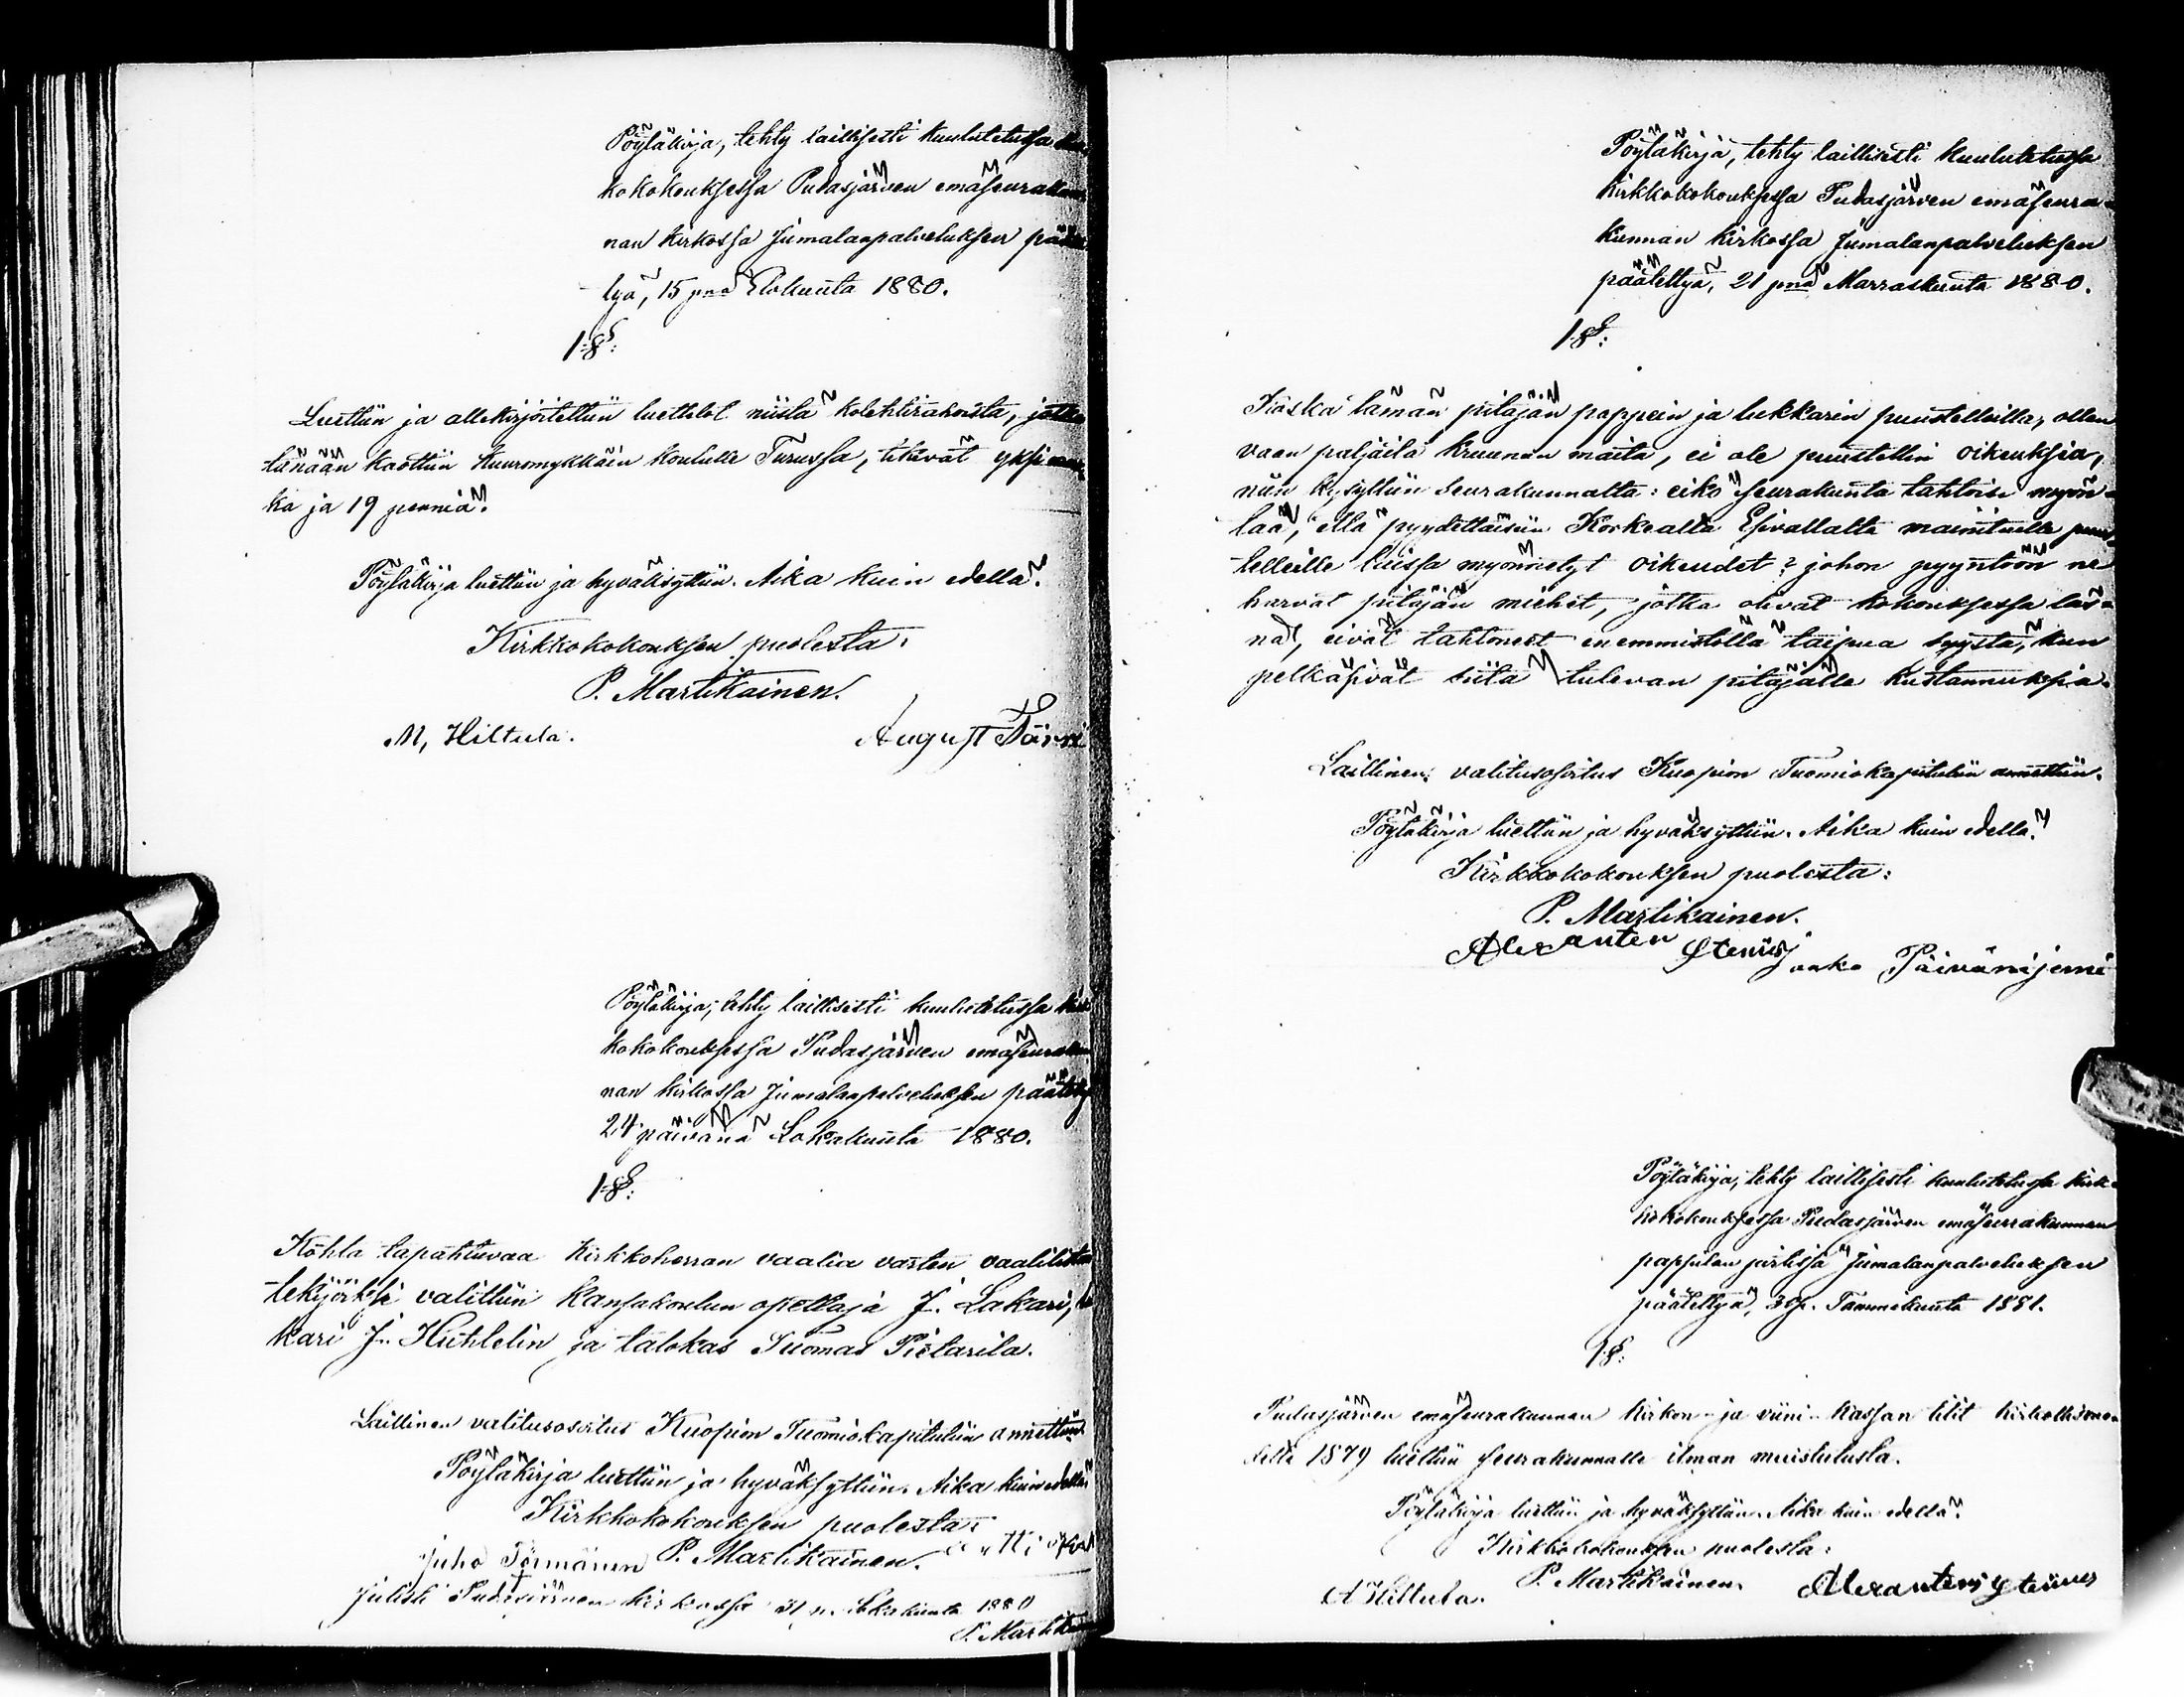 Pöytäkirja, tehty laillisesti kuulutetussa
kokokouksessa Pudasjärven emäseurakun
nan kirkossa Jumalanpalveluksen päätet
tyä, 15 pnä Elokuuta 1880.
1 §:
Luettiin ja allekirjoitettiin luettelot niistä kolehtirahoista, jotka
tänään kaottiin Kuuromykkäin koululle Turussa, tekivät yksi mark
ka ja 19 penniä.
Pöytäkirja luettiin ja hyväksyttiin. Aika kuin edellä.
Kirkkokokouksen puolesta:
P. Martikainen.
M, Hiltula. August Törri
Pöytäkirja, tehty laillisesti kuulutetussa kirk
kokokouksessa Pudasjärven emäseurakun
nan kirkossa Jumalanpalveluksen päätetty
24 päivänä Lokakuuta 1880.
1 §:
Kohta tapahtuvaa Kirkkoherran vaalia varten vaalilistan
tekijöiksi valittiin Kansakoulun opettaja J. Lakari,
kari J. Huhtelin ja talokas Tuomas Pietarila.
Laillinen valitusosoitus Kuopion Tuomiokapituliin annettiin.
Pöytäkirja luettiin ja hyväksyttiin. Aika kuin edellä
Kirkkokokouksen puolesta:
Juho Törmänen P. Martikainen.
Julisti Pudasjärven kirkossa 31 p. Lokakuuta 1880
P. Martikainen
Pöytäkirja, tehty laillisesti kuulutetussa
Kirkkokokouksessa Pudasjärven emäseura-
kunnan kirkossa Jumalanpalveluksen
päätettyä, 21 pnä Marraskuuta 1880.
1 §:
Koska tämän pitäjän pappein ja lukkarin puustelleilla, ollen
vaan paljaita kruunun maita, ei ole puustellin oikeuksia,
niin kysyttiin seurakunnalta: eikö seurakunta tahtoisi myön-
tää, että pyydettäisiin Korkealta Esivallalta mainituille puus-
telleille luissa myönnetyt oikeudet? johon pyyntöön ne
harvat pitäjän miehet, jotka olivat kokouksessa läs-
nä, eivät tahtoneet enemmistöllä taipua syystä, kun
pelkäsivät siitä tulevan pitäjälle kustannuksia.
Laillinen valitusosoitus Kuopion Tuomiokapituliin annettiin.
Pöytäkirja luettiin ja hyväksyttiin. Aika kuin edellä.
Kirkkokokouksen puolesta:
P. Martikainen.
Alexanteri Stenius Jaako Päivänijemi
Pöytäkirja, tehty laillisesti kuulutetussa kirk-
kokokouksessa Pudasjärven emäseurakunnan
pappilan pirtissä Jumalanpalveluksen
päätettyä, 30 p. Tammikuuta 1881.
1 §:
Pudasjärven emäseurakunnan kirkon- ja viini-kassan tilit kirkollisvuo-
delta 1879 luettiin seurakunnalle ilman muistutusta.
Pöytäkirja luettiin ja hyväksyttiin. Aika kuin edellä.
Kirkkokokouksen puolesta:
P. Martikainen.
A Hiltula. Alexanteri Stenius